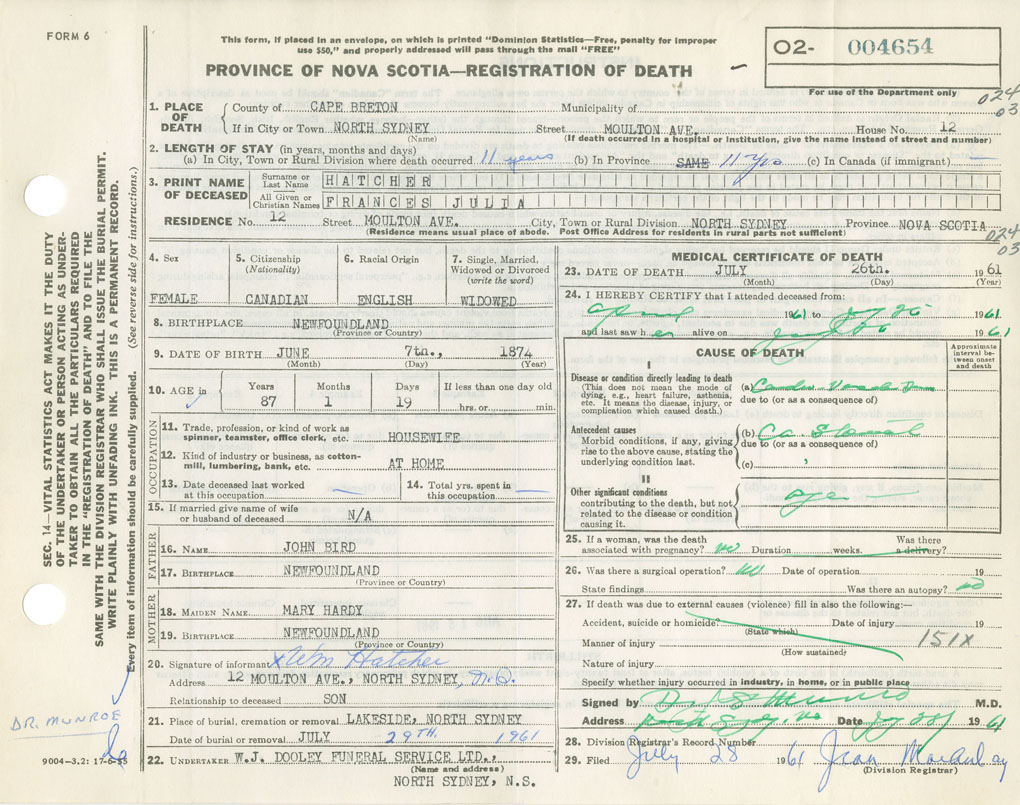 FORM 6
This form, if placed in an envelope, on which is printed "Dominion Statistics—Free, penalty for improper
use $50," and properly addressed will pass through the mail "FREE"
PROVINCE OF NOVA SCOTIA—REGISTRATION OF DEATH
02- 004654
For use of the Department only
024
03
1. PLACE OF DEATH County of CAPE BRETON Municipality of
If in City or Town NORTH SYDNEY Street MOULTON AVE. House No. 12
(Name) (If death occurred in a hospital or Institution, give the name instead of street and number)
2. LENGTH OF STAY (in years, months and days)
(a) In City, Town or Rural Division where death occurred 11 years (b) In Province SAME 11 Yrs (c) In Canada (if immigrant) —
3. PRINT NAME OF DECEASED Surname or Last Name HATCHER
All Given or Christian Names FRANCES JULIA
RESIDENCE No. 12 Street MOULTON AVE. City, Town or Rural Division NORTH SYDNEY Province NOVA SCOTIA
(Residence means usual place of abode. Post Office Address for residents in rural parts not sufficient)
024
03
4. Sex
FEMALE
5. Citizenship
(Nationality)
CANADIAN
6. Racial Origin
ENGLISH
7. Single, Married,
Widowed or Divorced
(write the word)
WIDOWED
8. BIRTHPLACE NEWFOUNDLAND
(Province or Country)
9. DATE OF BIRTH JUNE 7th., 1874
(Month) (Day) (Year)
10. AGE in Years Months Days If less than one day old
87 1 19 hrs. or min.
OCCUPATION
11. Trade, profession, or kind of work as
spinner, teamster, office clerk, etc. HOUSEWIFE
12. Kind of industry or business, as cotton-
mill, lumbering, bank, etc. AT HOME
13. Date deceased last worked
at this occupation —
14. Total yrs. spent in
this occupation —
15. If married give name of wife
or husband of deceased N/A
FATHER
16. NAME JOHN BIRD
17. BIRTHPLACE NEWFOUNDLAND
(Province or Country)
MOTHER
18. MAIDEN NAME MARY HARDY
19. BIRTHPLACE NEWFOUNDLAND
(Province or Country)
20. Signature of informant x Wm Hatcher
Address 12 MOULTON AVE., NORTH SYDNEY,
Relationship to deceased SON
21. Place of burial, cremation or removal LAKESIDE, NORTH SYDNEY
Date of burial or removal JULY 29TH. 1961
22. UNDERTAKER W.J. DOOLEY FUNERAL SERVICE LTD.,
(Name and address)
NORTH SYDNEY, N.S.
MEDICAL CERTIFICATE OF DEATH
23. DATE OF DEATH JULY 26th. 1961
(Month) (Day) (Year)
24. I HEREBY CERTIFY that I attended deceased from:
1961 to July 26 1961
and last saw her alive on 1961
CAUSE OF DEATH
Approximate
interval be-
tween onset
and death
I
Disease or condition directly leading to death
(This does not mean the mode of
dying, e.g., heart failure, asthenia,
etc. It means the disease, injury, or
complication which caused death.)
(a)
due to (or as a consequence of)
Antecedent causes
Morbid conditions, if any, giving
rise to the above cause, stating the
underlying condition last.
(b) Ca
due to (or as a consequence of)
(c)
II
Other significant conditions
contributing to the death, but not
related to the disease or condition
causing it.
age —
25. If a woman, was the death
associated with pregnancy? no Duration weeks. Was there
a delivery?
26. Was there a surgical operation? no Date of operation 19
State findings Was there an autopsy? no
27. If death was due to external causes (violence) fill in also the following:—
Accident, suicide or homicide? Date of injury 19
(State which)
Manner of injury 151X
(How sustained)
Nature of injury
Specify whether injury occurred in industry, in home, or in public place
Signed by Munro M.D.
Address North Sydney, NS Date July 28 1961
28. Division Registrar's Record Number
29. Filed July 28 1961 Jean
(Division Registrar)
SEC. 14—VITAL STATISTICS ACT MAKES IT THE DUTY
OF THE UNDERTAKER OR PERSON ACTING AS UNDER-
TAKER TO OBTAIN ALL THE PARTICULARS REQUIRED
IN THE "REGISTRATION OF DEATH" AND TO FILE THE
SAME WITH THE DIVISION REGISTRAR WHO SHALL ISSUE THE BURIAL PERMIT.
WRITE PLAINLY WITH UNFADING INK. THIS IS A PERMANENT RECORD.
Every item of information should be carefully supplied. (See reverse side for instructions.)
DR. MUNROE
9004-3.2: 17-6-55